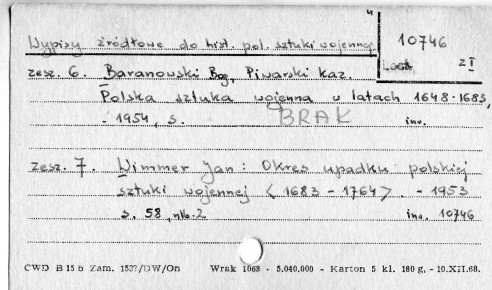 Wypisy źródłowe do hist. pol. sztuki wojennej
10746
z I
zesz. 6. Baranowski Bog., Piwarski Kaz.
Polska sztuka wojenna w latach 1648-1683,
- 1954, s. BRAK inw.
zesz. 7. Wimmer Jan: Okres upadku polskiej
sztuki wojennej < 1683 - 1764 >. - 1953
s. 58, nlb. 2 inw. 10746
CWD B 15 b Zam. 1537/DW/On Wrak 1063 - 5.040.000 - Karton 5 kl. 180 g, - 10.XII.68.